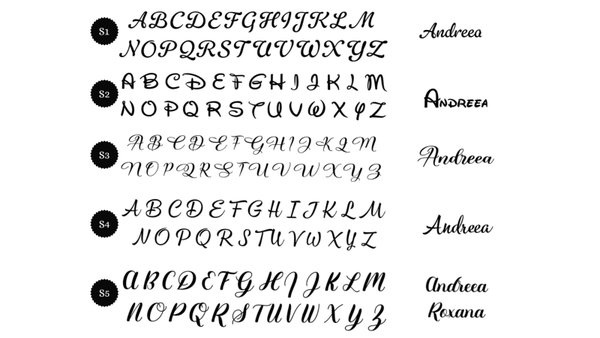 S1
ABCDEFGHIJKLM
NOPQRSTUVWXYZ
Andreea
S2
ABCDEFGHIJKLM
NOPQRSTUVWXYZ
ANDREEA
S3
ABCDEFGHIJKLM
NOPQRSTUVWXYZ
Andreea
S4
ABCDEFGHIJKLM
NOPQRSTUVWXYZ
Andreea
S5
ABCDEFGHIJKLM
NOPQRSTUVWXYZ
Andreea
Roxana